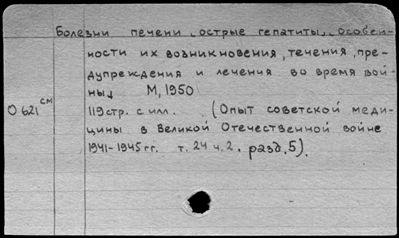 Болезни печени, острые гепатиты. Особен-
ности их возникновения, течения, пре-
дупреждения и лечения во время вой-
ны. М, 1950
О 621 см
119 стр. с илл. (Опыт советской меди-
цины в Великой Отечественной войне
1941-1945 гг. т. 24 ч. 2. разд. 5).